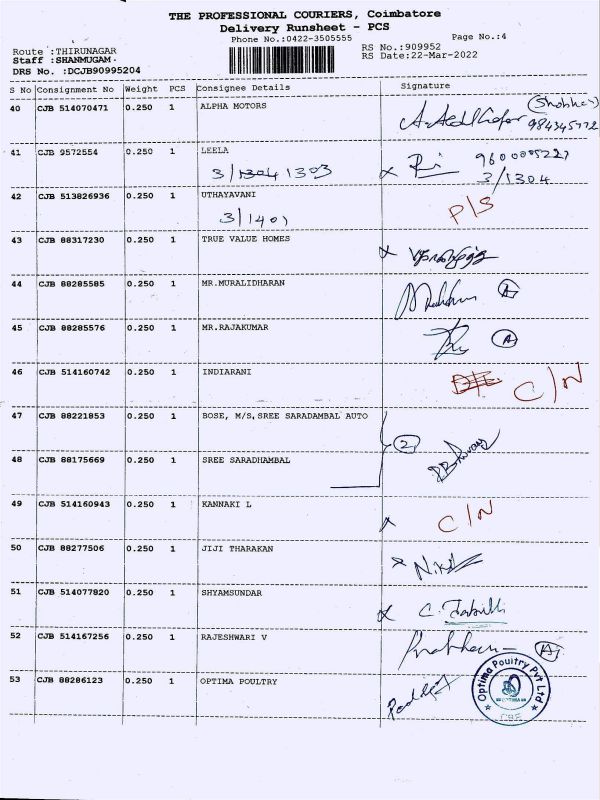 THE PROFESSIONAL COURIERS, Coimbatore
Delivery Runsheet - PCS
Phone No.:0422-3505555 Page No.:4
Route :THIRUNAGAR RS No.:909952
Staff :SHANMUGAM. RS Date:22-Mar-2022
DRS No. :DCJB90995204
S No Consignment No Weight PCS Consignee Details Signature
40 CJB 514070471 0.250 1 ALPHA MOTORS
41 CJB 9572554 0.250 1 LEELA
3/1304 1303 3/1304
42 CJB 513826936 0.250 1 UTHAYAVANI P/S
3/1401
43 CJB 88317230 0.250 1 TRUE VALUE HOMES
44 CJB 88285585 0.250 1 MR.MURALIDHARAN A
45 CJB 88285576 0.250 1 MR.RAJAKUMAR A
46 CJB 514160742 0.250 1 INDIARANI C/N
47 CJB 88221853 0.250 1 BOSE, M/S,SREE SARADAMBAL AUTO 2
48 CJB 88175669 0.250 1 SREE SARADHAMBAL
49 CJB 514160943 0.250 1 KANNAKI L C/N
50 CJB 88277506 0.250 1 JIJI THARAKAN
51 CJB 514077820 0.250 1 SHYAMSUNDAR
52 CJB 514167256 0.250 1 RAJESHWARI V A
53 CJB 88286123 0.250 1 OPTIMA POULTRY
Optima Poultry Pvt Ltd
OPTIMA
CBE